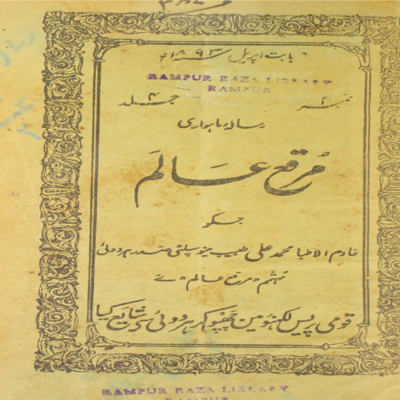 بابت اپریل ۱۸۹۳ء
RAMPUR RAZA LIBRARY
RAMPUR
نمبر ۴ جلد ۴
رسالہ ماہواری
مرقع عالم
جسکو
خادم الاطبا محمد علی طبیب میونسپلٹی صدر ہردوئی
مہتمم مرقع عالم نے
قومی پریس لکھنؤ مین چھپوا کر ہردوئی سے شایع کیا
RAMPUR RAZA LIBRARY
RAMPUR